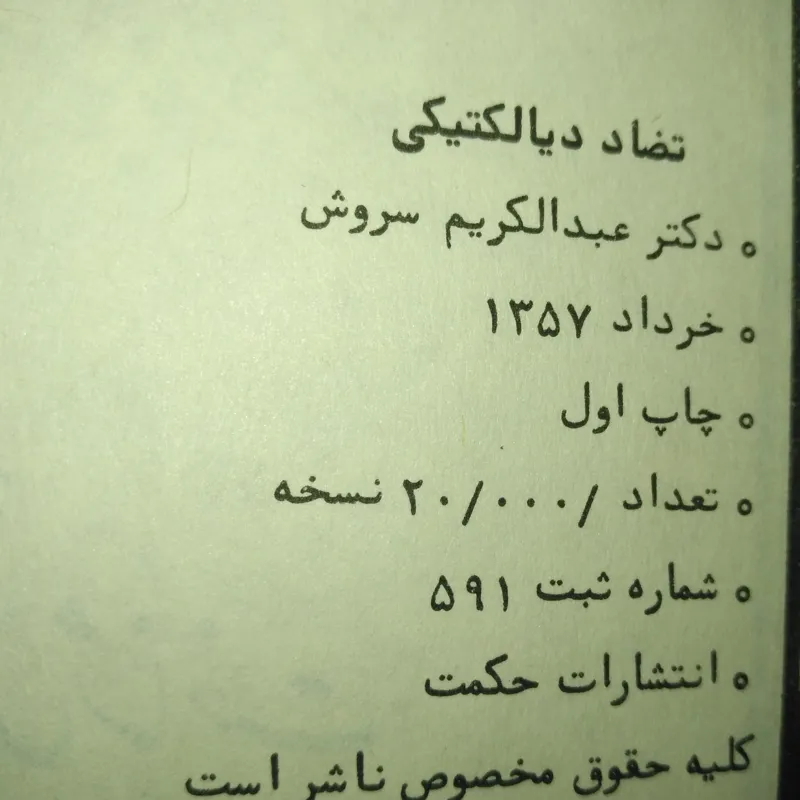 تضاد دیالکتیکی
o دکتر عبدالکریم سروش
o خرداد ۱۳۵۷
o چاپ اول
o تعداد /۲۰/۰۰۰ نسخه
o شماره ثبت ۵۹۱
o انتشارات حکمت
کلیه حقوق مخصوص ناشر است